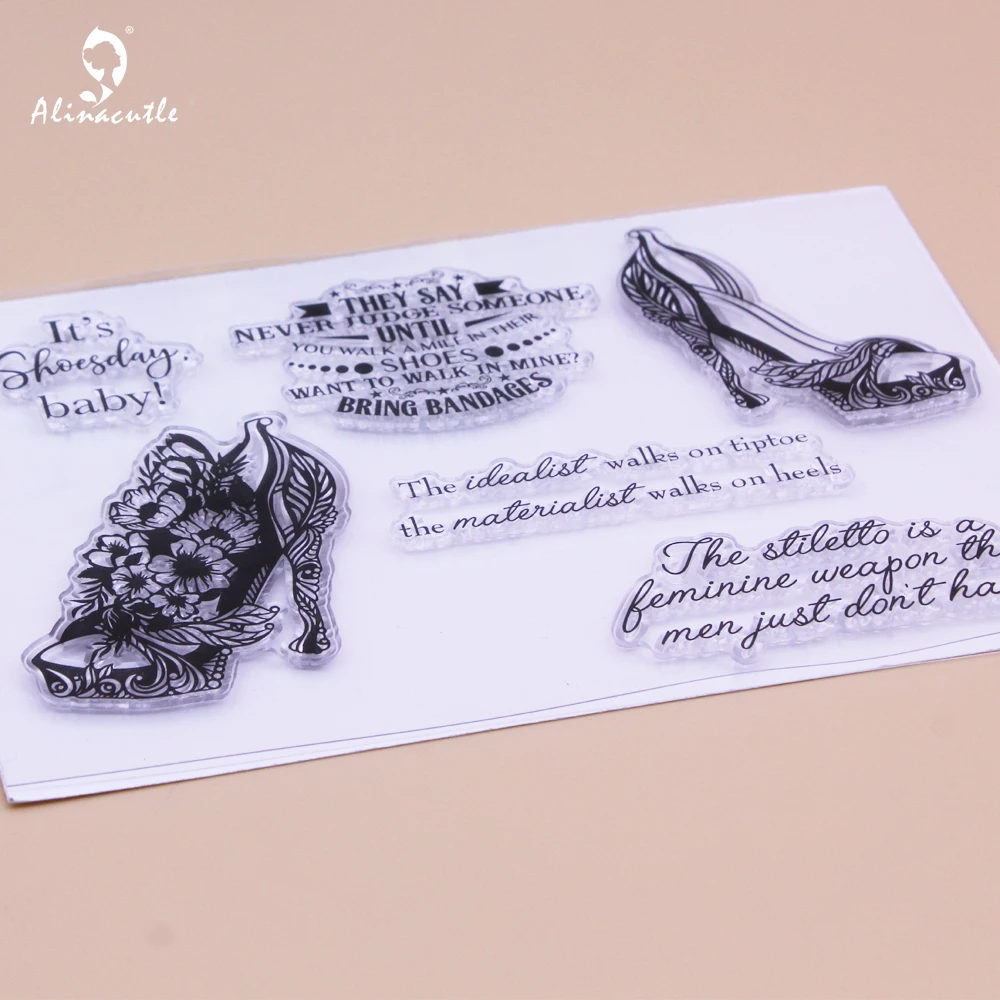 Alinacutle
It's
Shoesday,
baby!
THEY SAY
NEVER JUDGE SOMEONE
UNTIL
YOU WALK A MILE IN THEIR
SHOES
WANT TO WALK IN MINE?
BRING BANDAGES
The idealist walks on tiptoe
the materialist walks on heels
The stiletto is a
feminine weapon th
men just don't ha